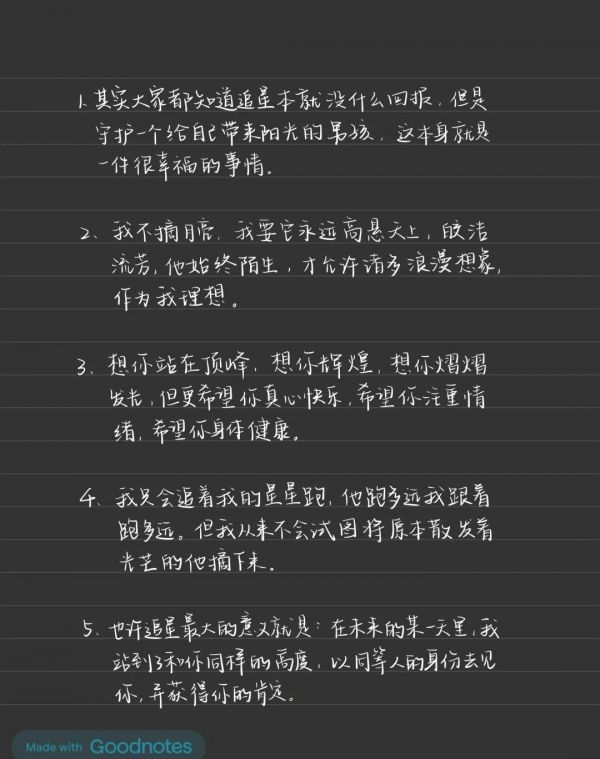 1、其实大家都知道追星本就没什么回报，但是
守护一个给自己带来阳光的男孩，这本身就是
一件很幸福的事情。
2、我不摘月亮，我要它永远高悬天上，皎洁
流芳，他始终陌生，才允许诸多浪漫想象，
作为我理想。
3、想你站在顶峰，想你辉煌，想你熠熠
发光，但更希望你真心快乐，希望你注重情
绪，希望你身体健康。
4、我只会追着我的星星跑，他跑多远我跟着
跑多远。但我从来不会试图将原本散发着
光芒的他摘下来。
5、也许追星最大的意义就是：在未来的某一天里，我
站到了和你同样的高度，以同等人的身份去见
你，并获得你的肯定。
Made with Goodnotes